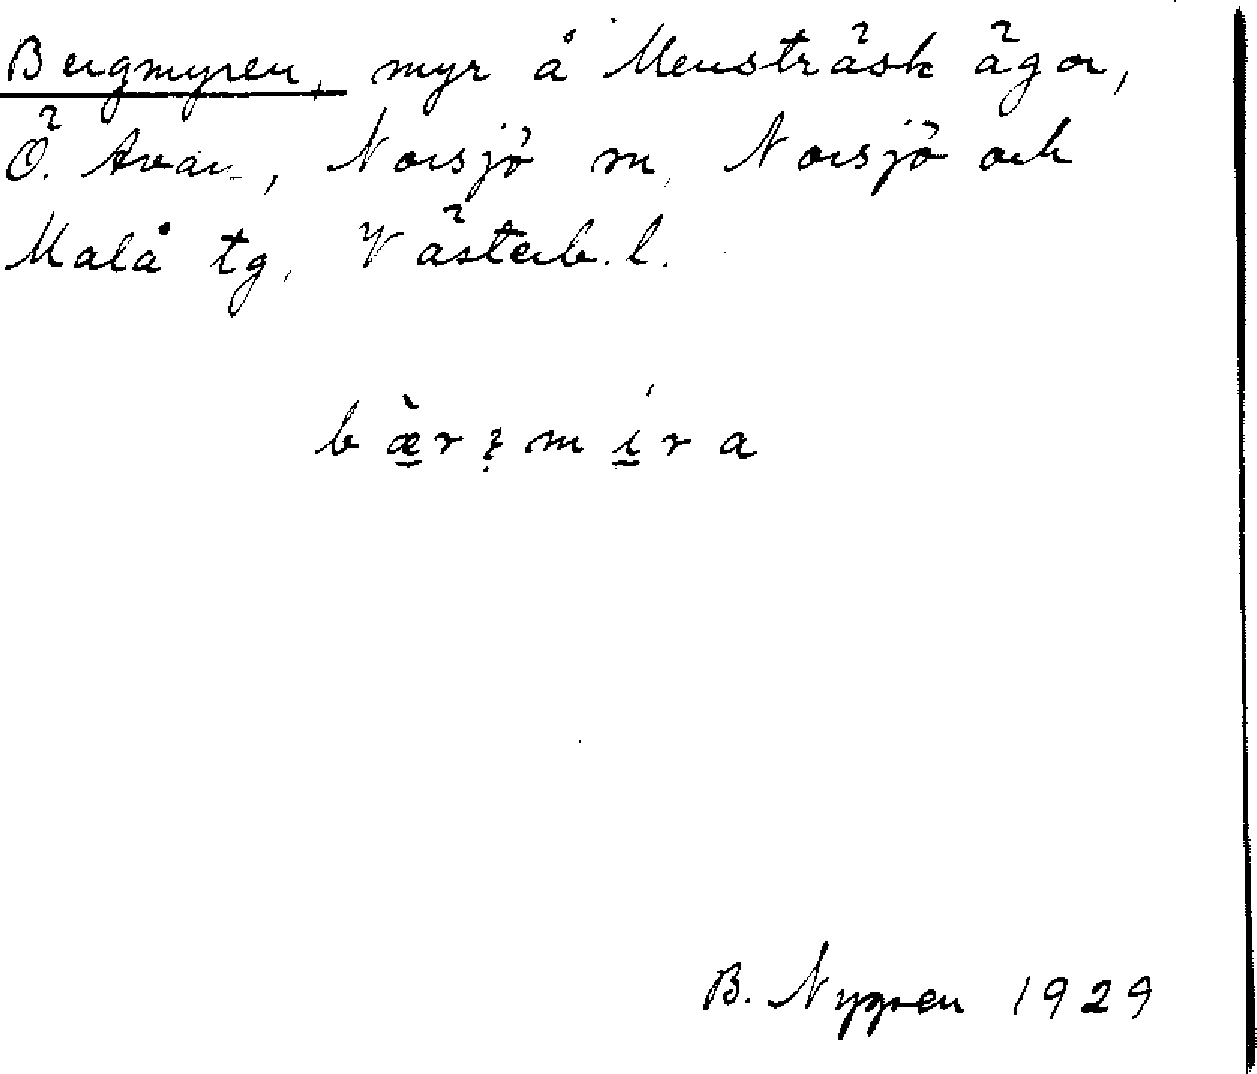 Bergmyren, myr å Mensträsk ägor,
Ö. Avan, Norsjö m, Norsjö och
Malå tg, Västerb. l.
bæ̱̀rʒ̣mí̱ra
B. Nygren 1929